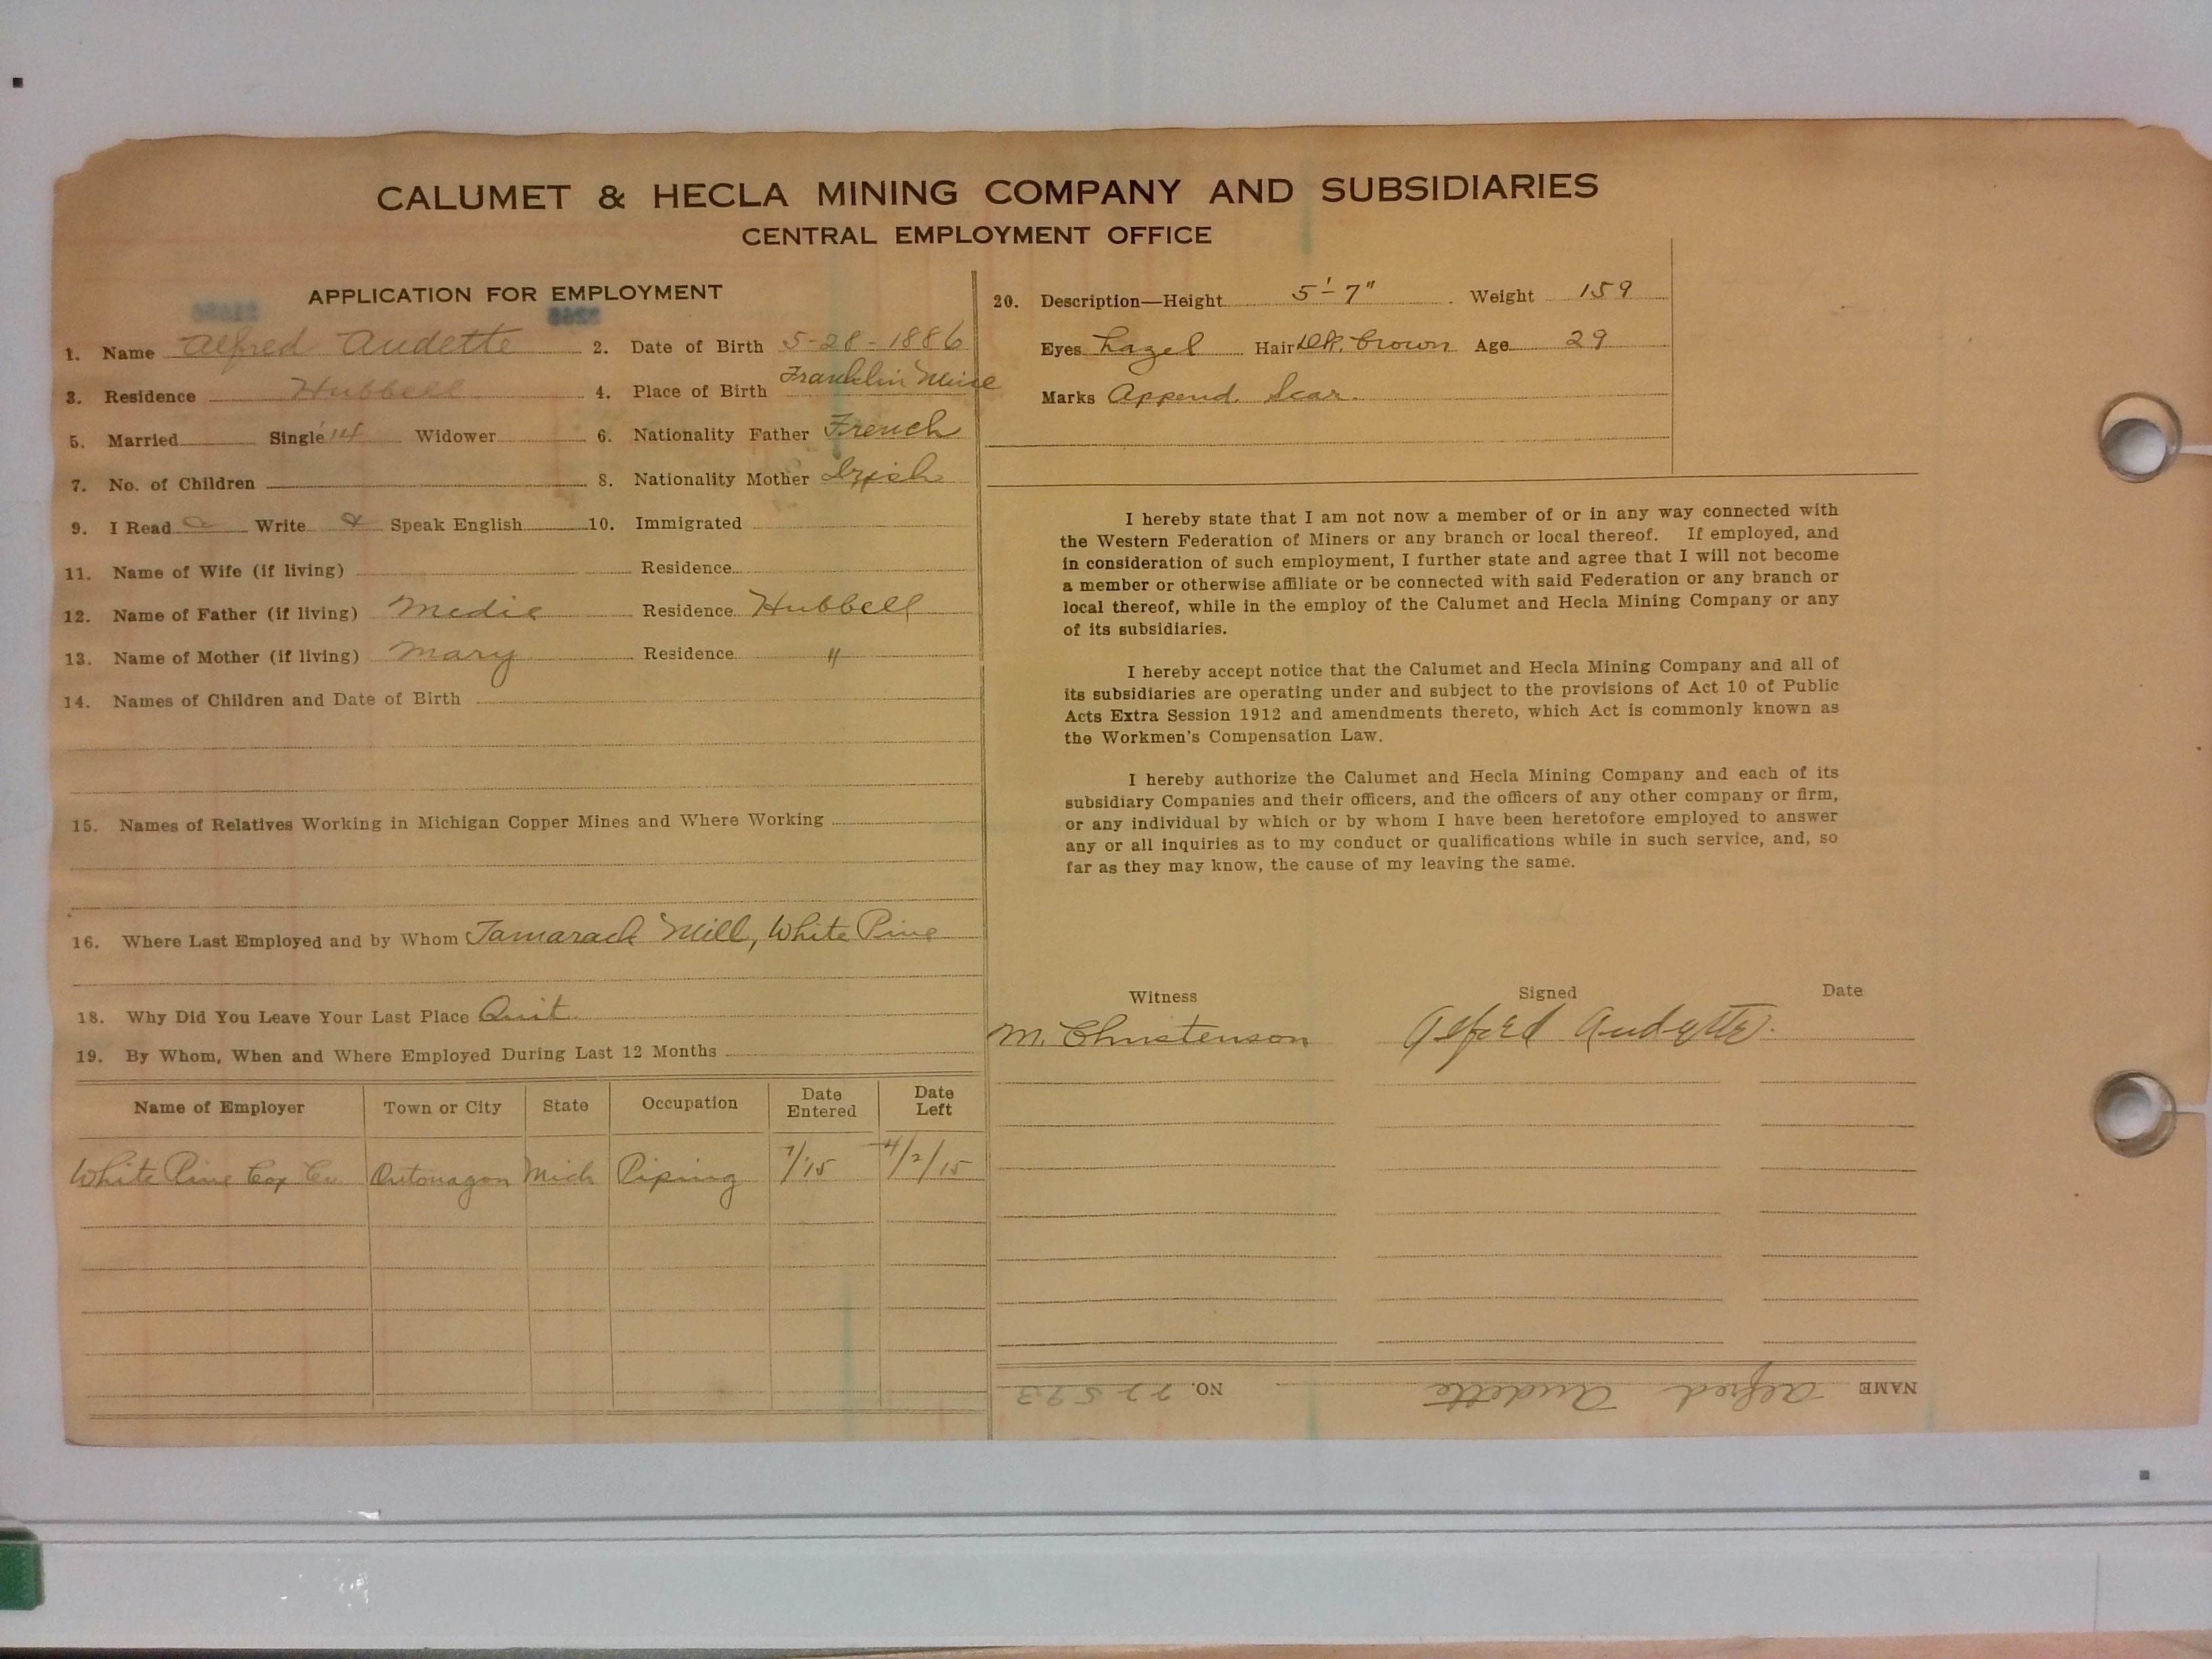 CALUMET & HECLA MINING COMPANY AND SUBSIDIARIES
CENTRAL EMPLOYMENT OFFICE
APPLICATION FOR EMPLOYMENT
1. Name Alfred Audette 2. Date of Birth 5-28-1886
3. Residence Hubbell 4. Place of Birth Franklin Mine
5. Married Single Widower 6. Nationality Father French
7. No. of Children 8. Nationality Mother Irish
9. I Read Write Speak English 10. Immigrated
11. Name of Wife (if living) Residence
12. Name of Father (if living) Medie Residence Hubbell
13. Name of Mother (if living) Mary Residence "
14. Names of Children and Date of Birth
15. Names of Relatives Working in Michigan Copper Mines and Where Working
16. Where Last Employed and by Whom Tamarack Mill, White Pine
18. Why Did You Leave Your Last Place Quit
19. By Whom, When and Where Employed During Last 12 Months
Name of Employer Town or City State Occupation Date Entered Date Left
White Pine Cop Co. Ontonagon Mich Piping /15 4/2/15
20. Description—Height 5'-7" Weight 159
Eyes hazel Hair Dk. brown Age 29
Marks Append. Scar.
I hereby state that I am not now a member of or in any way connected with
the Western Federation of Miners or any branch or local thereof. If employed, and
in consideration of such employment, I further state and agree that I will not become
a member or otherwise affiliate or be connected with said Federation or any branch or
local thereof, while in the employ of the Calumet and Hecla Mining Company or any
of its subsidiaries.
I hereby accept notice that the Calumet and Hecla Mining Company and all of
its subsidiaries are operating under and subject to the provisions of Act 10 of Public
Acts Extra Session 1912 and amendments thereto, which Act is commonly known as
the Workmen's Compensation Law.
I hereby authorize the Calumet and Hecla Mining Company and each of its
subsidiary Companies and their officers, and the officers of any other company or firm,
or any individual by which or by whom I have been heretofore employed to answer
any or all inquiries as to my conduct or qualifications while in such service, and, so
far as they may know, the cause of my leaving the same.
Witness Signed Date
M. Christenson Alfred Audette.
NAME Alfred Audette NO. 22593